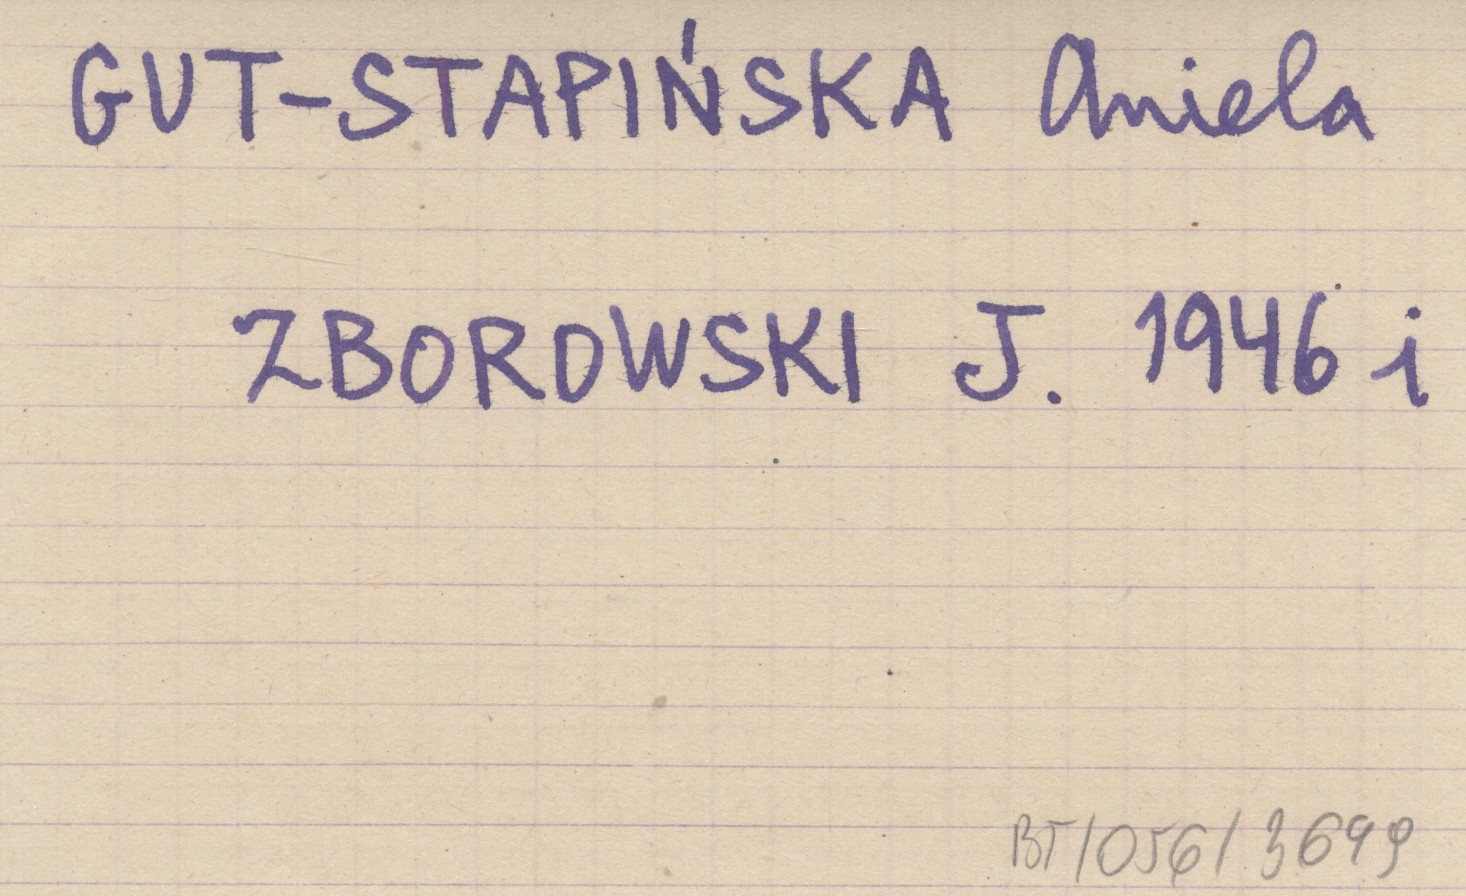 GUT-STAPIŃSKA Aniela
ZBOROWSKI J. 1946 i
BT/056/3699